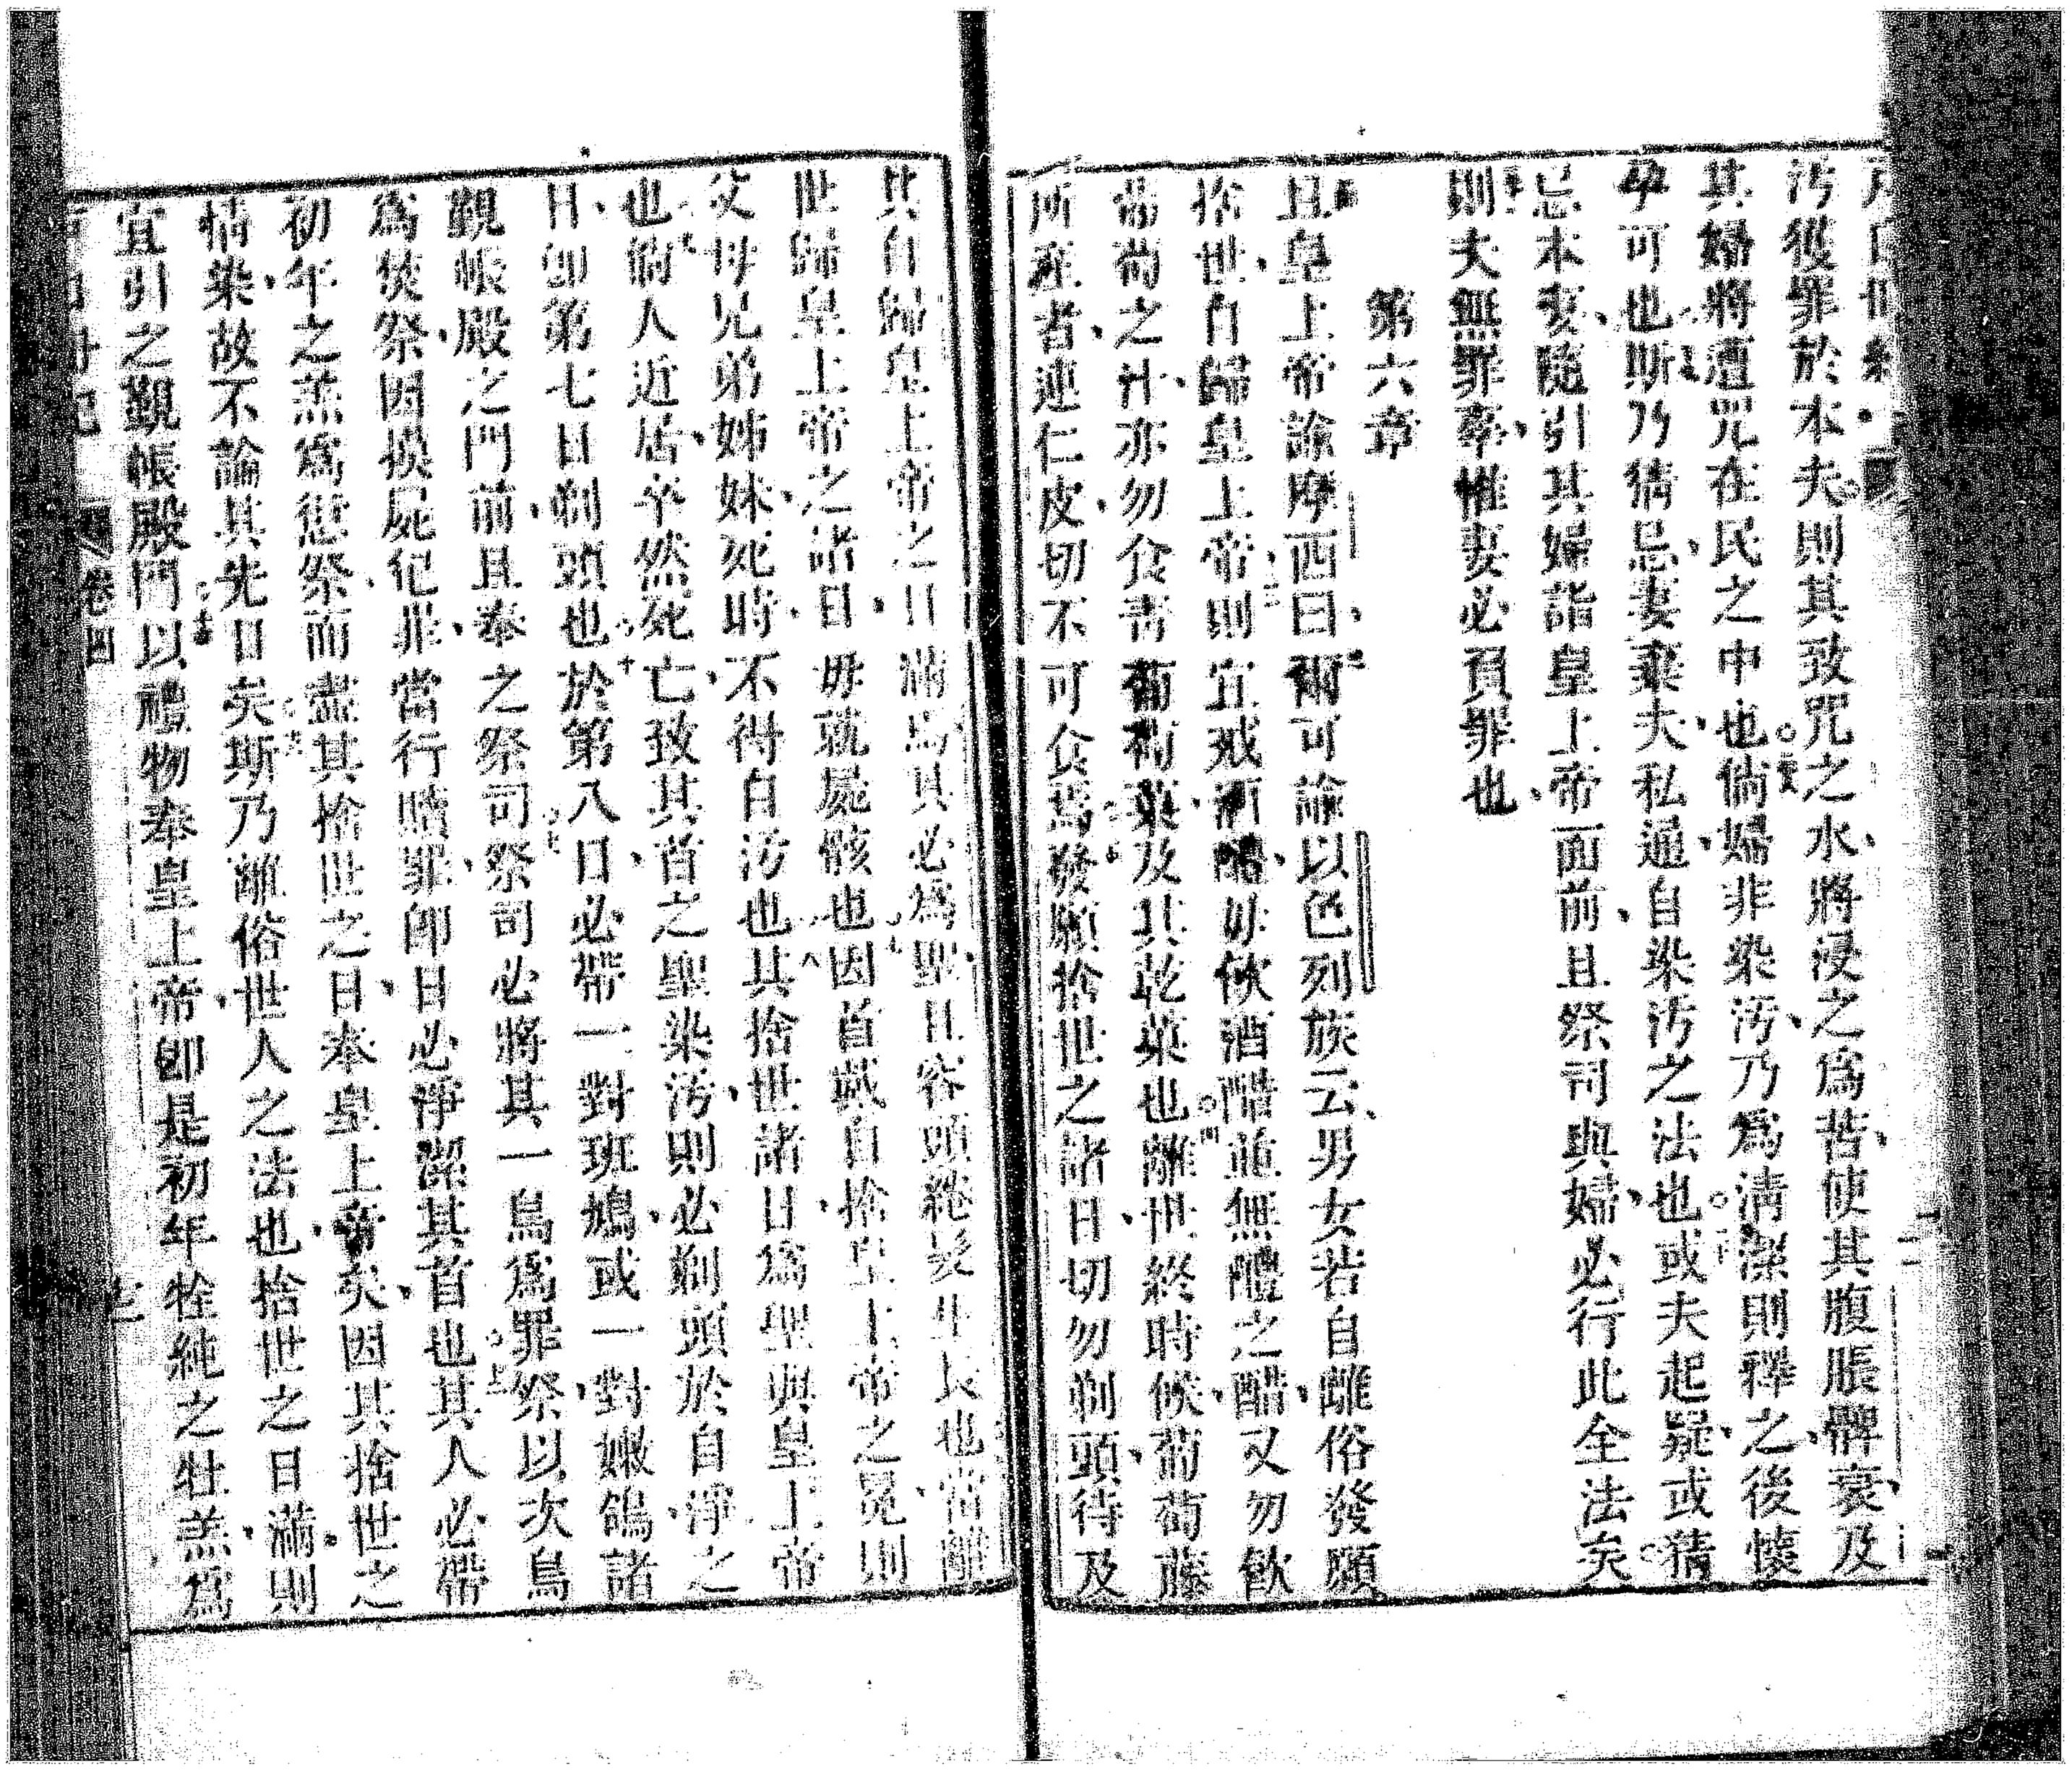 汚獲罪於本夫則其致咒之水、將浸之爲苦、使其腹脹髀衰、及
其婦將遭咒在民之中也倘婦非染汚、乃爲淸潔則釋之、後懷
孕可也斯乃猜忌、妻棄夫、私通、自染汚之法也或夫起疑、或猜
忌本妻、隨引其婦詣皇上帝面前、且祭司與婦、必行此全法矣
則夫無罪辜、惟妻必負罪也、
第六章
且皇上帝諭摩西曰、爾可諭以色列族云、男女若自離俗發願
捨世、自歸皇上帝、則宜戒酒醋、毋飲酒醋並無醴之醋、又勿飲
葡萄之汁、亦勿食靑葡萄菓、及其乾菓也離世終時候、葡萄藤
所產者、連仁皮、切不可食焉發願捨世之諸日、切勿剃頭、待及
其自歸皇上帝之日滿焉其必爲聖、且容頭綹髮生長也當離
世歸皇上帝之諸日、毋就屍骸也因首戴自捨皇上帝之冕、則
父母兄弟姊妹死時、不得自汚也其捨世諸日、爲聖與皇上帝
也倘人近居、卒然死亡、致其首之聖染汚、則必剃頭於自淨之
日、卽第七日剃頭也於第八日、必帶一對班鳩、或一對嫩鴿、詣
覲帳殿之門前、且奉之祭司祭司必將其一鳥爲罪祭、以次鳥
爲焚祭、因挨屍犯罪、當行贖罪、卽日必淨潔其首也其人必帶
初年之羔爲愆祭、而盡其捨世之日、奉皇上帝矣、因其捨世之
情染、故不論其先日矣斯乃離俗世人之法也、捨世之日滿、則
宜引之覲帳殿門以禮物奉皇上帝、卽是初年牷純之牡羔、爲
卷四